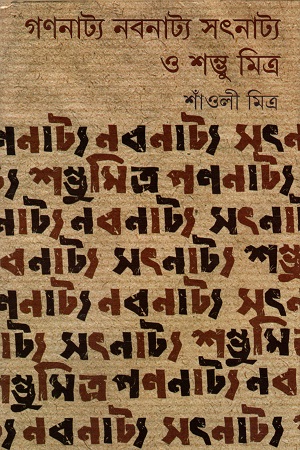 গণনাট্য নবনাট্য সৎনাট্য
ও শম্ভু মিত্র
শাঁওলী মিত্র
গণনাট্য নবনাট্য সৎনা
ট্য শম্ভুমিত্র গণনাট্য
নাট্য নবনাট্য সৎনাট্য
নবনাট্য সৎনাট্য শম্ভু
গণনাট্য নবনাট্য সৎন
নাট্য সৎনাট্য শম্ভুমি
ম্ভুমিত্র গণনাট্য নবন
নবনাট্য সৎনাট্য গণ